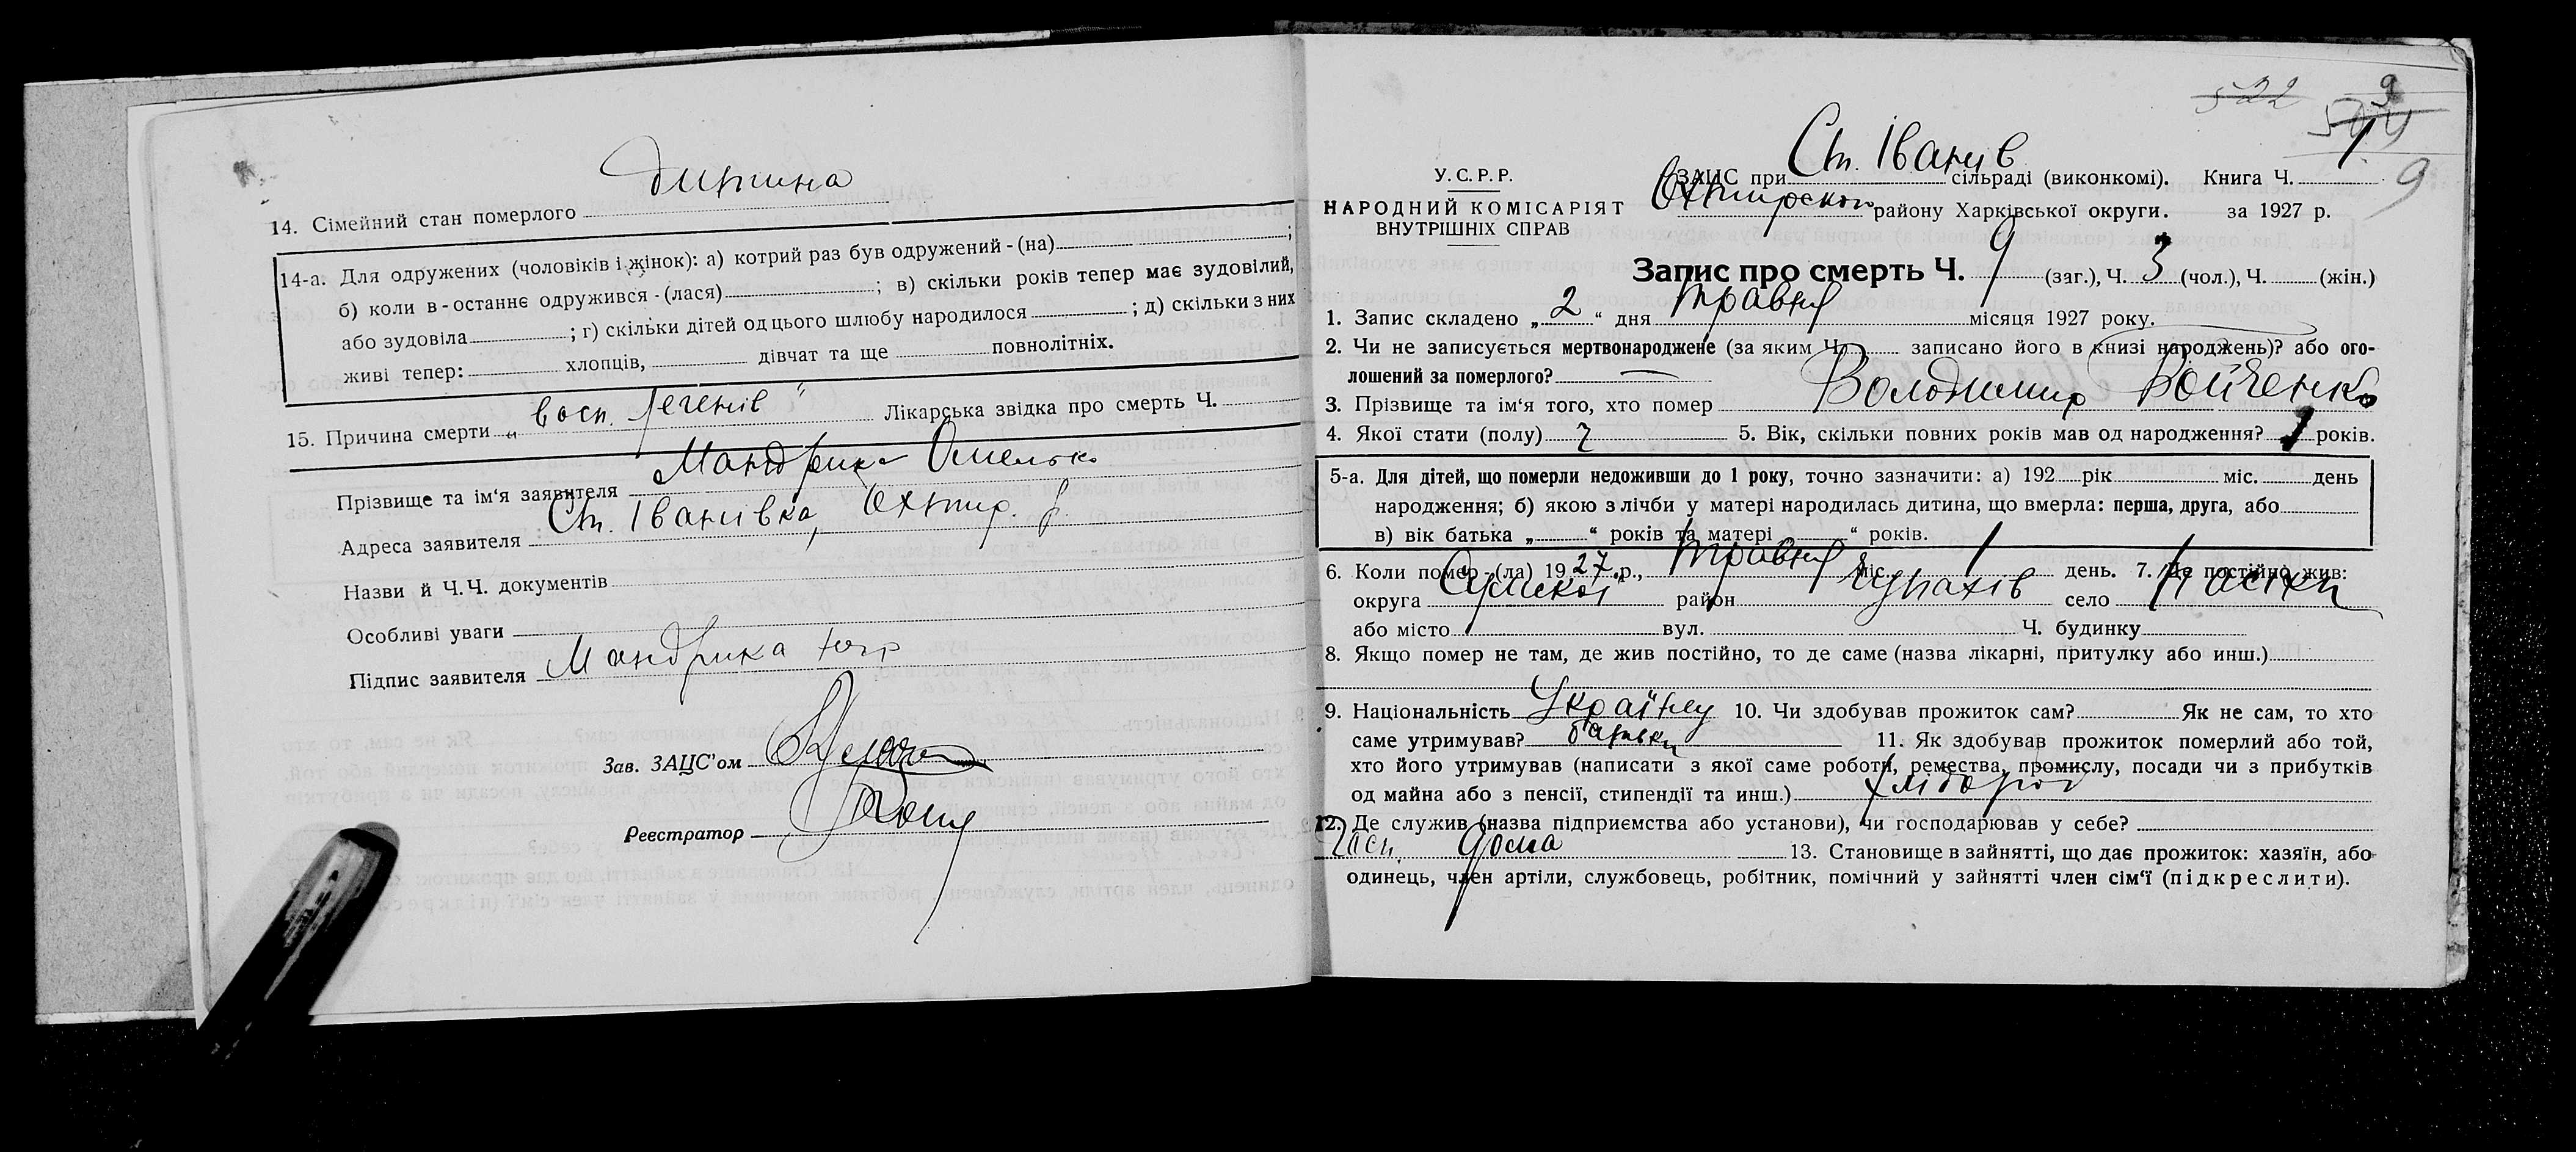 дитина
14. Сімейний стан померлого
14-а. Для одружених (чоловіків і жінок): а) котрий раз був одружений - (на) ;
б) коли в-останнє одружився - (лася) ; в) скільки років тепер має зудовілий,
або зудовіла ; г) скільки дітей од цього шлюбу народилося ; д) скільки з них
живі тепер: хлопців, дівчат та ще повнолітніх.
15. Причина смерти „ восп. легенів “ Лікарська звідка про смерть Ч.
Прізвище та ім'я заявителя Мандрика Омелько
Адреса заявителя Ст. Іванівка, Охтир. р.
Назви й Ч.Ч. документів
Особливі уваги
Підпис заявителя Мандрика
Зав. ЗАЦС'ом
Реєстратор
522 9
9
У.С.Р.Р.
НАРОДНИЙ КОМІСАРІЯТ
ВНУТРІШНІХ СПРАВ
ЗАЦС при Ст. Іванів сільраді (виконкомі). Книга Ч. 1
Охтирского району Харківської округи. за 1927 р.
Запис про смерть Ч. 9 (заг.), Ч. 3 (чол.), Ч. (жін.)
1. Запис складено „ 2 “ дня травня місяця 1927 року.
2. Чи не записується мертвонароджене (за яким Ч. записано його в книзі народжень)? або ого-
лошений за померлого? —
3. Прізвище та ім'я того, хто помер Володимир Бойченко
4. Якої стати (полу) ч 5. Вік, скільки повних років мав од народження? 1 років.
5-а. Для дітей, що померли недоживши до 1 року, точно зазначити: а) 192 рік міс. день
народження; б) якою з лічби у матері народилась дитина, що вмерла: перша, друга, або
в) вік батька „ “ років та матері „ “ років.
6. Коли помер - (ла) 1927 р., травня міс. 1 день. 7. Де постійно жив:
округа Сумської район Чупахів село
або місто вул. Ч. будинку
8. Якщо помер не там, де жив постійно, то де саме (назва лікарні, притулку або инш.)
9. Національність Україне͏ц 10. Чи здобував прожиток сам? Як не сам, то хто
саме утримував? батьки 11. Як здобував прожиток померлий або той,
хто його утримував (написати з якої саме роботи, ремества, промислу, посади чи з прибутків
од майна або з пенсії, стипендії та инш.) хлібороб
12. Де служив (назва підприємства або установи), чи господарював у себе?
Госп. дома 13. Становище в зайнятті, що дає прожиток: хазяїн, або
одинець, член артіли, службовець, робітник, помічний у зайнятті член сім'ї (підкреслити).